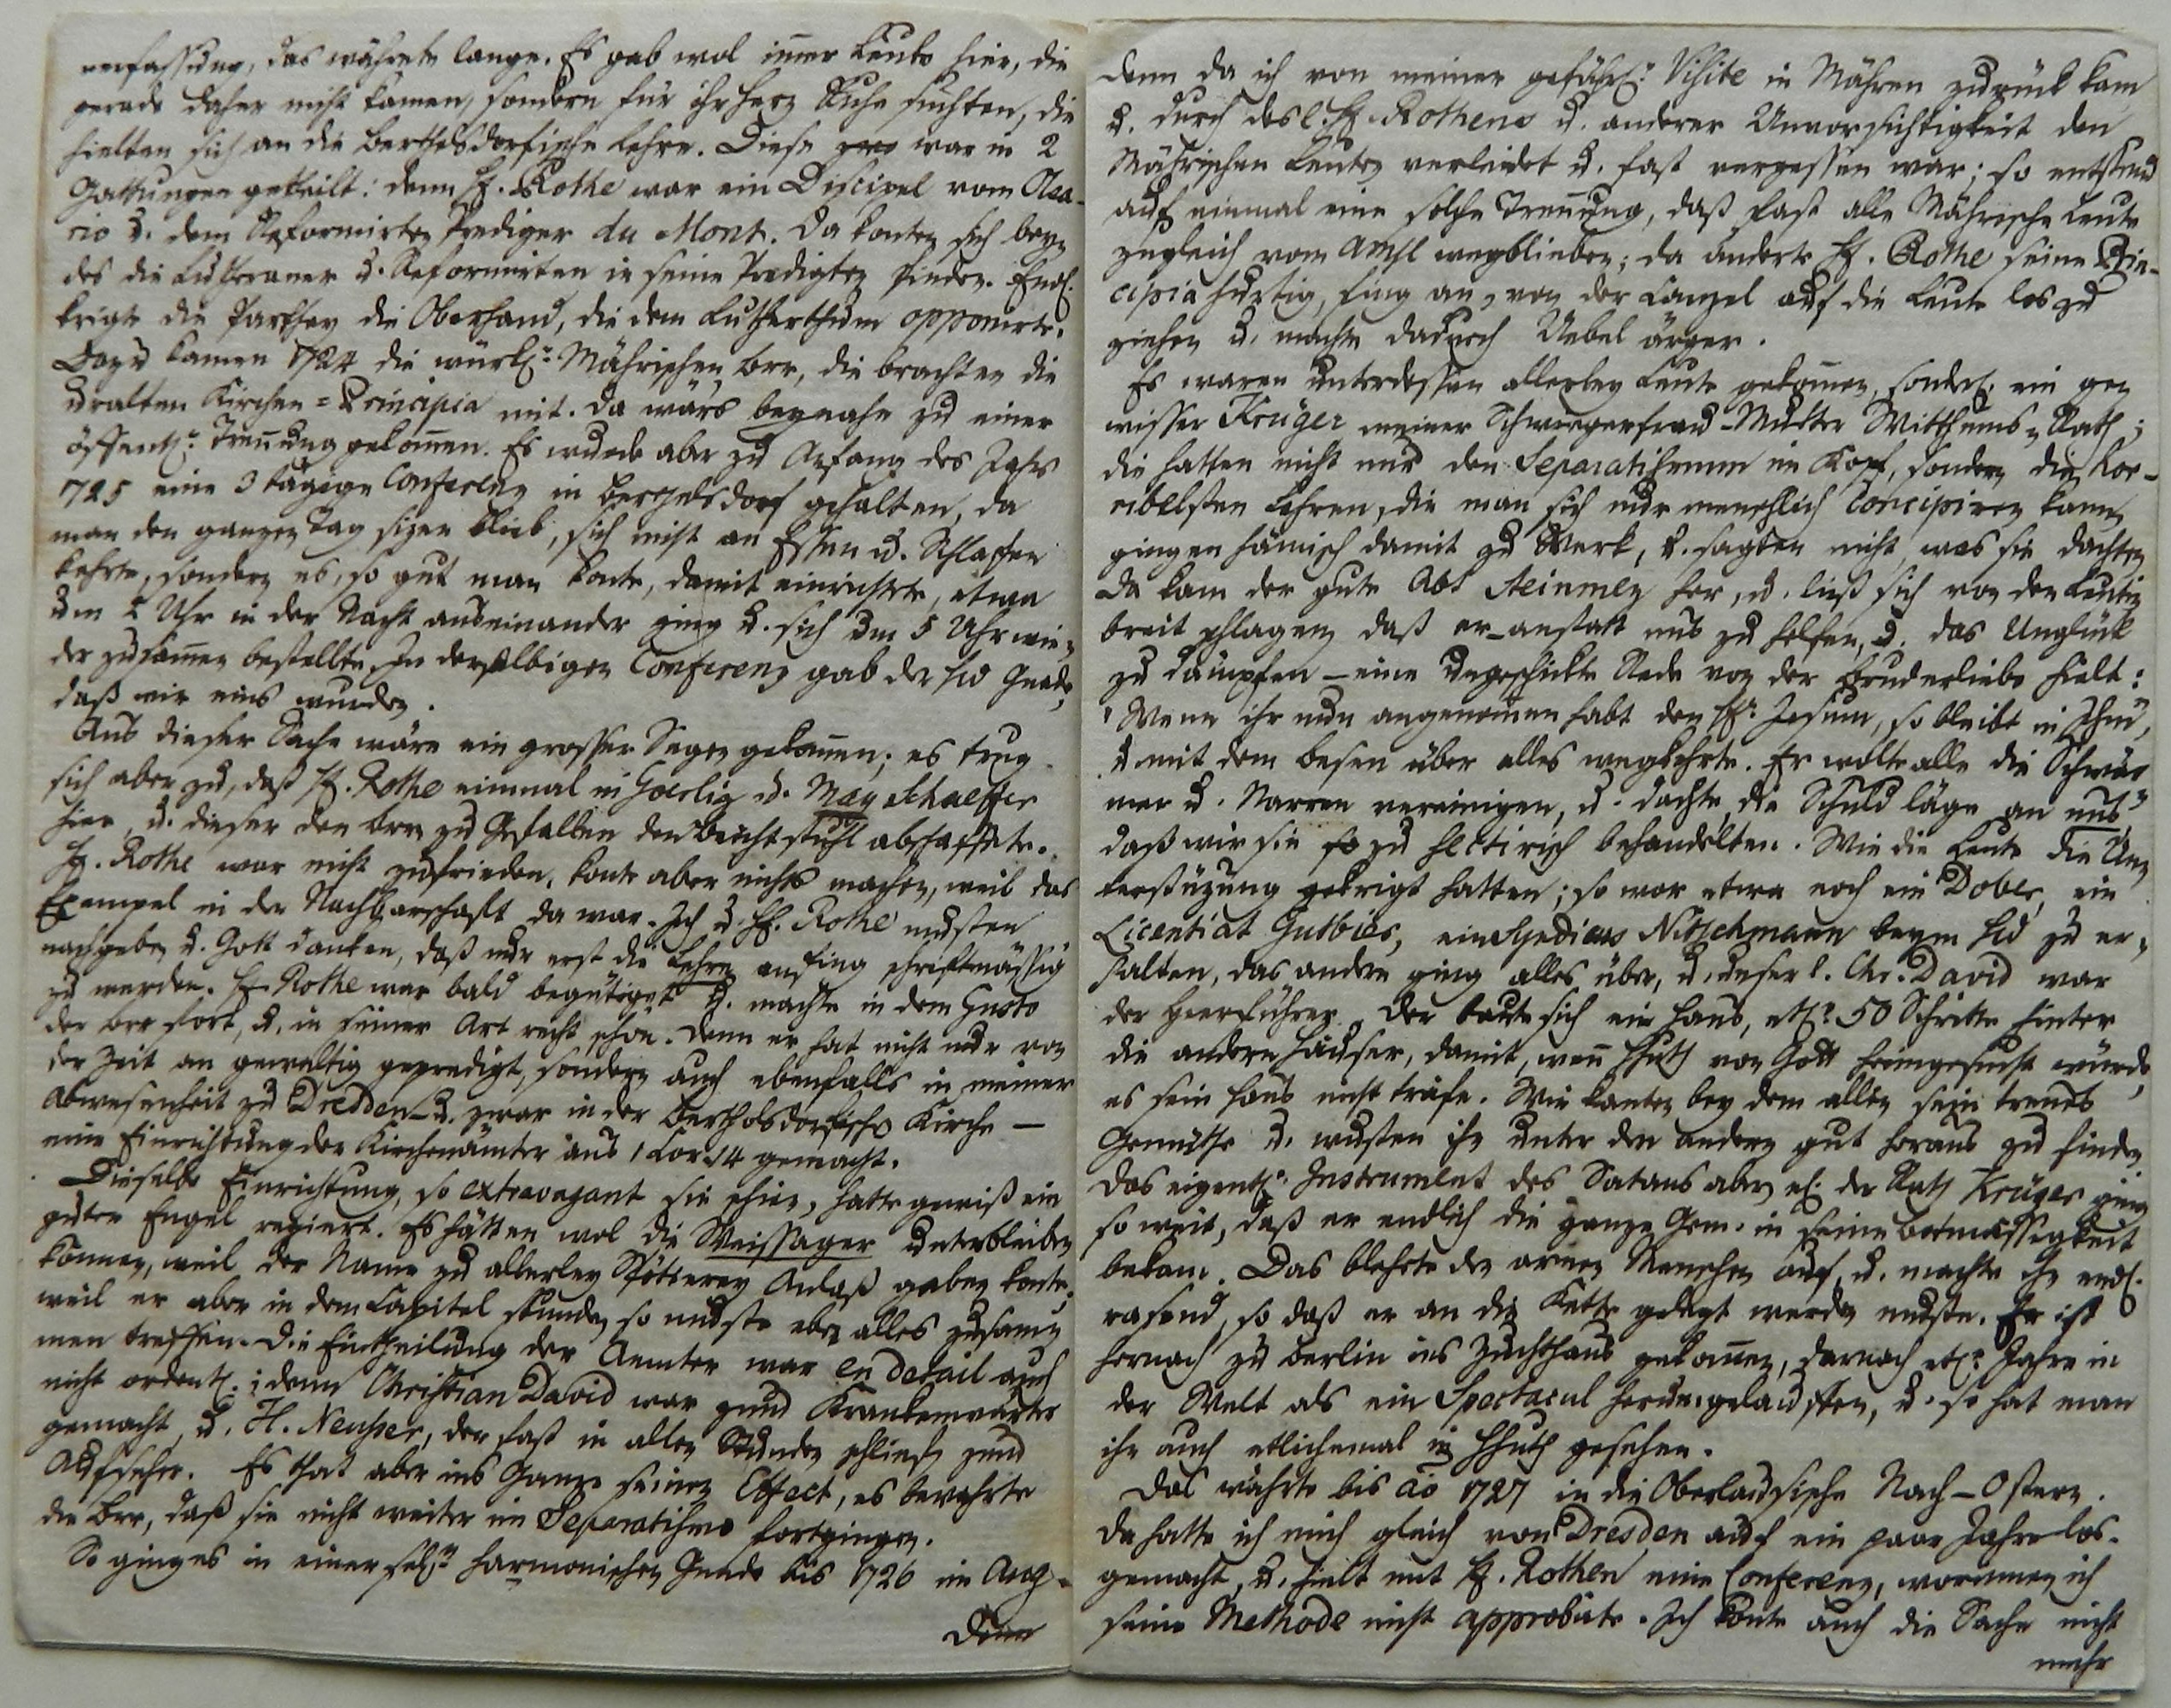 verfassung, das währete lange. Es gab wol im̅er Leute hier, die
gerade daher nicht kamen, sondern für ihr Herz Ruhe suchten, die
hielten sich an die Berthelsdorfische Lehre. Diese war in 2
Gattungen getheilt: denn H. Rothe war ein Discipel vom
rio u. dem Reformirten Prediger du Mont. Da konten sich bey-
des die Lutheraner u. Reformirten in seine Predigten finden. Endl.
krigte die Parthey die Oberhand, die dem Lutherthum opponirte.
Dazu kamen 1724 die würkl. Mährischen Brr, die brachten die
uralten Kirchen-Principia mit. Da wärs beynahe zu einer
öffentl. Tren̅ung gekom̅en. Es wurde aber zu Anfang des Jahrs
1725 eine 3 tägige Conferenz in Berthelsdorf gehalten, da
man den ganzen Tag sizen blieb, sich nicht an Essen u. Schlaffen
kehrte, sondern es, so gut man konte, damit einrichtete, etwa
um 2 Uhr in der Nacht auseinander ging u. sich um 5 Uhr wie-
der zusam̅en bestellte. In derselbigen Conferenz gab der Hld Gnade,
daß wir eins wurden.
Aus dieser Sache wäre ein grosser Segen gekom̅en; es trug
sich aber zu, daß H. Rothe einmal in Goerliz u. Mag Schaeffer
hier, u. dieser den Brrn zu Gefallen den Beichtstuhl abschaffete.
H. Rothe war nicht zufrieden, konte aber nichts machen, weil das
Exempel in der Nachbarschafft da war. Ich u. H. Rothe musten
nachgeben u. Gott danken, daß nur erst die Lehre anfing schriftmässig
zu werden. H. Rothe war bald begütiget u. machte in dem Gusto
der Brr fort, u. in seiner Art recht schön. Denn er hat nicht nur von
der Zeit an gewaltig gepredigt, sondern auch ebenfalls in meiner
Abwesenheit zu Dresden - u. zwar in der Berthelsdorfische Kirche —
eine Einrichtung der Kirchenämter aus 1 Cor. 14 gemacht.
Dieselbe Einrichtung, so extravagant sie schien, hatte gewiß ein
guter Engel regiert. Es hätten wol die Weissager unterbleiben
können, weil der Name zu allerley Spötterey Anlaß geben konte.
weil er aber in dem Capitel stunde, so muste eben alles zusam̅-
men treffen. Die Eintheilung der Aemter war en detail auch
nicht ordentl.; denn Christian David war zum Krankenwärter
gemacht, u. H. Neusser, der fast in allen Stunden schlief, zum
Aufseher. Es that aber ins Ganze seinen Effect, es bewahrte
die Brr, daß sie nicht weiter im Separatismo fortgingen.
So ging es in einer sel. harmonischen Gnade bis 1726 im Aug.
Denn
Denn da ich von meiner gefährl. Visite in Mähren zurück kam
u. durch des l. H. Rothens u. anderer Unvorsichtigkeit den
Mährischen Leuten verleidet u. fast vergessen war; so entstand
auf einmal eine solche Tren̅ung, daß fast alle Mährische Leute
zugleich vom Abml wegblieben; da änderte H. Rothe seine Prin-
cipia hurtig, fing an, von der Canzel auf die Leute los zu
ziehen u. machte dadurch Uebel ärger.
Es waren unterdessen allerley Leute gekom̅en, sonderl. ein ge-
wisser Krüger meiner Schwiegerfrau-Mutter Witthums-Rath;
die hatten nicht nur den Separatismum im Kopf, sondern die hor-
ribelsten Lehren, die man sich nur menschlich concipiren kan,
gingen hämisch damit zu Werk, u. sagten nicht, was sie dachten
Da kam der gute Abt Steinmez her, u. ließ sich von den Leuten
breit schlagen, daß er - anstatt uns zu helfen, u. das Unglück
zu dämpfen - eine ungeschickte Rede von der Bruderliebe hielt:
"Wenn ihr nun angenom̅en habt den H. Jesum, so bleibt in Ihm",
u. mit dem Besen über alles wegkehrte. Er wolte alle die Schwär-
mer u. Narren vereinigen, u. dachte, die Schuld läge an uns,
daß wir sie so zu sectirisch behandelten. Wie die Leute die Un-
terstüzung gekrigt hatten; so war etwa noch ein Dober, ein
Licentiat Gutbier, ein Syndicus Nitschmann beym Hld zu er-
halten, das andere ging alles über, u. unser l. Chr. David war
der Heerführer. Der baute sich ein Haus, etl. 50 Schritte hinter
die andern Häuser, damit, wen̅ Hhuth von Gott heimgesucht würde,
es sein Haus nicht träfe. Wir kanten bey dem allen sein treues
Gemüthe u. wusten ihn unter den andern gut heraus zu finden
Das eigentl. Instrument des Satans aber, nl. der Rath Krüger ging
so weit, daß er endlich die ganze Gem. in seine Botmässigkeit
bekam. Das blehete den armen Menschen auf, u. machte ihn endl.
rasend, so daß er an die Kette gelegt werden muste. Er ist
hernach zu Berlin ins Zuchthaus gekom̅en, darnach etl. Jahre in
der Welt als ein Spectacul herumgelauffen, u. so hat man
ihn auch etlichemal in Hhuth gesehen.
Das währte bis ao 1727 in die Oberlausische Nach-Ostern.
da hatte ich mich gleich von Dresden auf ein paar Jahre los-
gemacht, u. hielt mit H. Rothen eine Conferenz, worinnen ich
seine Methode nicht approbirte. Ich konte auch die Sache nicht
mehr